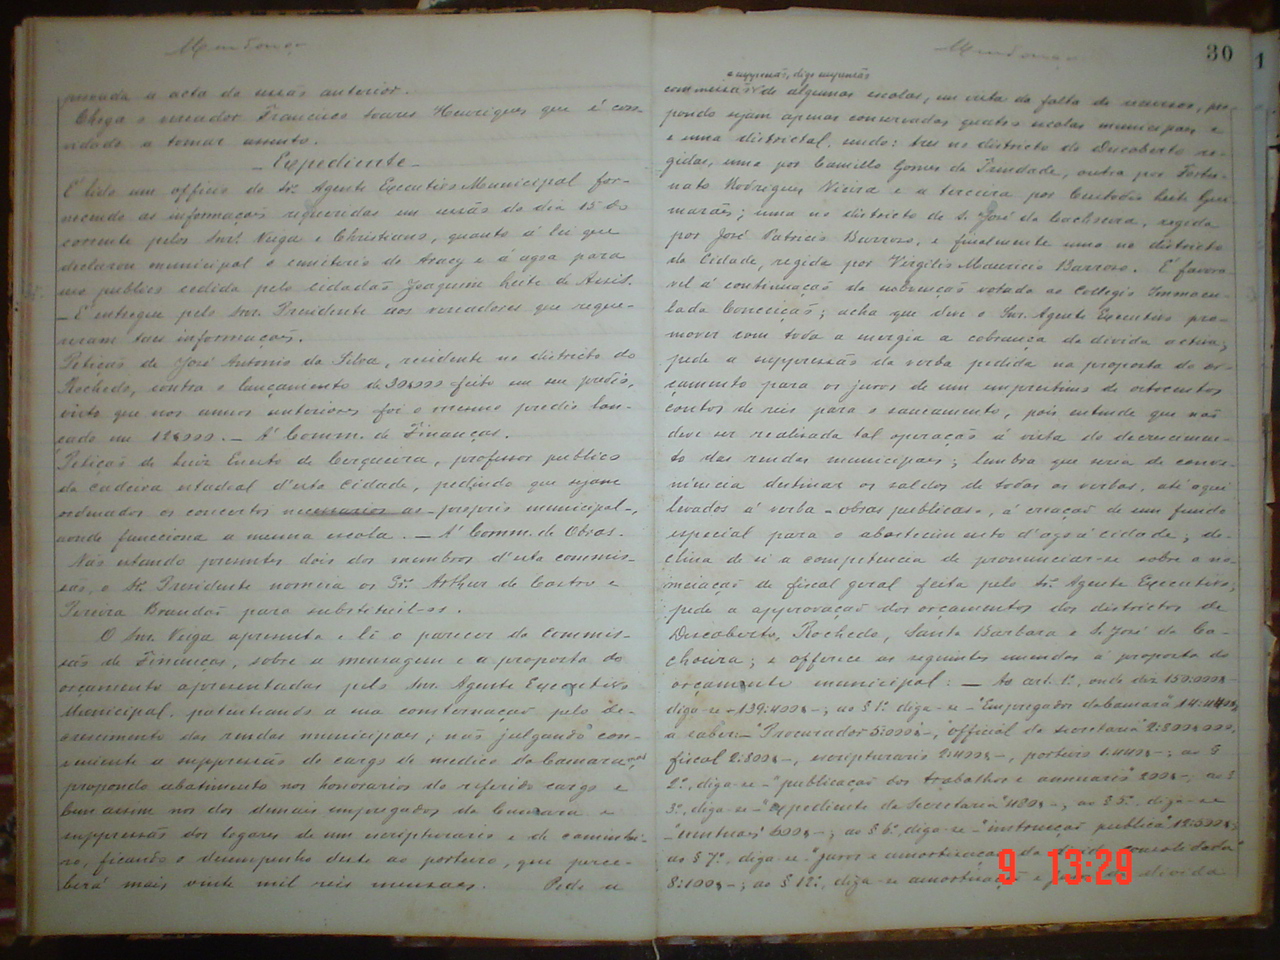 Mendonça
provada a acta da sessão anterior.
Chega o vereador Francisco Soares Henriques que é con-
vidado a tomar assento.
— Expediente —
É lido um officio do Sr. Agente Executivo Municipal for-
necendo as informações requeridas em sessão do dia 15 do
corrente pelos Snrs. Veiga e Christiano, quanto á lei que
declarou municipal o cemiterio do Aracy e á agoa para
uso publico cedida pelo cidadão Joaquim Leite de Assis.
— É entregue pelo Snr. Presidente aos vereadores que reque-
reram taes informações.
Petição de José Antonio da Silva, residente no districto do
Rochedo, contra o lançamento de 30$000 feito em seu predio,
visto que nos annos anteriores foi o mesmo predio lan-
çado em 12$000. — Á Comm. de Finanças.
Petição de Luiz Ernesto de Cerqueira, professor publico
da cadeira estadoal d'esta Cidade, pedindo que sejam
ordenados os concertos necessarios ao proprio municipal,
aonde funcciona a mesma escola. — Á Comm. de Obras.
Não estando presentes dois dos membros d'esta commis-
são, o Sr. Presidente nomeia os Srs. Arthur de Castro e
Pereira Brandão para substituil-os.
O Snr. Veiga apresenta e lê o parecer da commis-
são de Finanças, sobre a mensagem e a proposta do
orçamento apresentadas pelo Snr. Agente Executivo
Municipal, patenteando a sua consternação pelo de-
crescimento das rendas municipaes; não julgando con-
veniente a suppressão do cargo de medico da Camara, mas
propondo abatimento nos honorarios do referido cargo e
bem assim nos dos demais empregados da Camara e
suppressão dos logares de um escripturario e de caminhei-
ro, ficando o desempenho deste ao porteiro, que perce-
berá mais vinte mil reis mensaes. Pede a
Mendonça
30
a suppressão, digo suppressão
commissão de algumas escolas, em vista da falta de recursos, pro-
pondo sejam apenas conservadas quatro escolas municipaes e
e uma districtal, sendo: tres no districto do Descoberto re-
gidas, uma por Camillo Gomes da Trindade, outra por Fortu-
nato Rodrigues Vieira e a terceira por Custodio Leite Gui-
marães; uma no districto de S. José da Cachoeira, regida
por José Patricio Barroso, e finalmente uma no districto
da Cidade, regida por Virgilio Mauricio Barroso. É favora-
vel á continuação da subvenção votada ao Collegio Immacu-
lada Conceição; acha que deve o Snr. Agente Executivo pro-
mover com toda a energia a cobrança da divida activa;
pede a suppressão da verba pedida na proposta do or-
çamento para os juros de um emprestimo de oitocentos
contos de reis para o saneamento, pois entende que não
deve ser realisada tal operação á vista do decrescimen-
to das rendas municipaes; lembra que seria de conve-
niencia destinar os saldos de todas as verbas, até aqui
levados á verba — obras publicas —, á creação de um fundo
especial para o abastecimento d'agoa á cidade; de-
clina de si a competencia de pronunciar-se sobre a no-
meiação de fiscal geral feita pelo Sr. Agente Executivo;
pede a approvação dos orçamentos dos districtos de
Descoberto, Rochedo, Santa Barbara e S. José da Ca-
choeira; e offerece as seguintes emendas á proposta do
orçamento municipal: — Ao art. 1º, onde diz 150:000$
diga-se — 139:400$ —; ao § 1º diga-se — "Empregados da Camara"
a saber: — "Procurador 5:000$ —, official da secretaria 2:800$000,
fiscal 2:800$ —, escripturario 2:400$ —, porteiro 1:440$ —; ao §
2º, diga-se — "publicação dos trabalhos e annuario" 200$ —; ao §
3º, diga-se — "expediente da Secretaria" 480$ —; ao § 5º, diga-se
— "eventuaes" 600$ —; ao § 6º, diga-se — "instrucção publica" 12:500$;
ao § 7º, diga-se — "juros e amortisação da divida consolidada"
8:100$ —; ao § 12º, diga-se amortisação e juros da divida
9 13:29
1